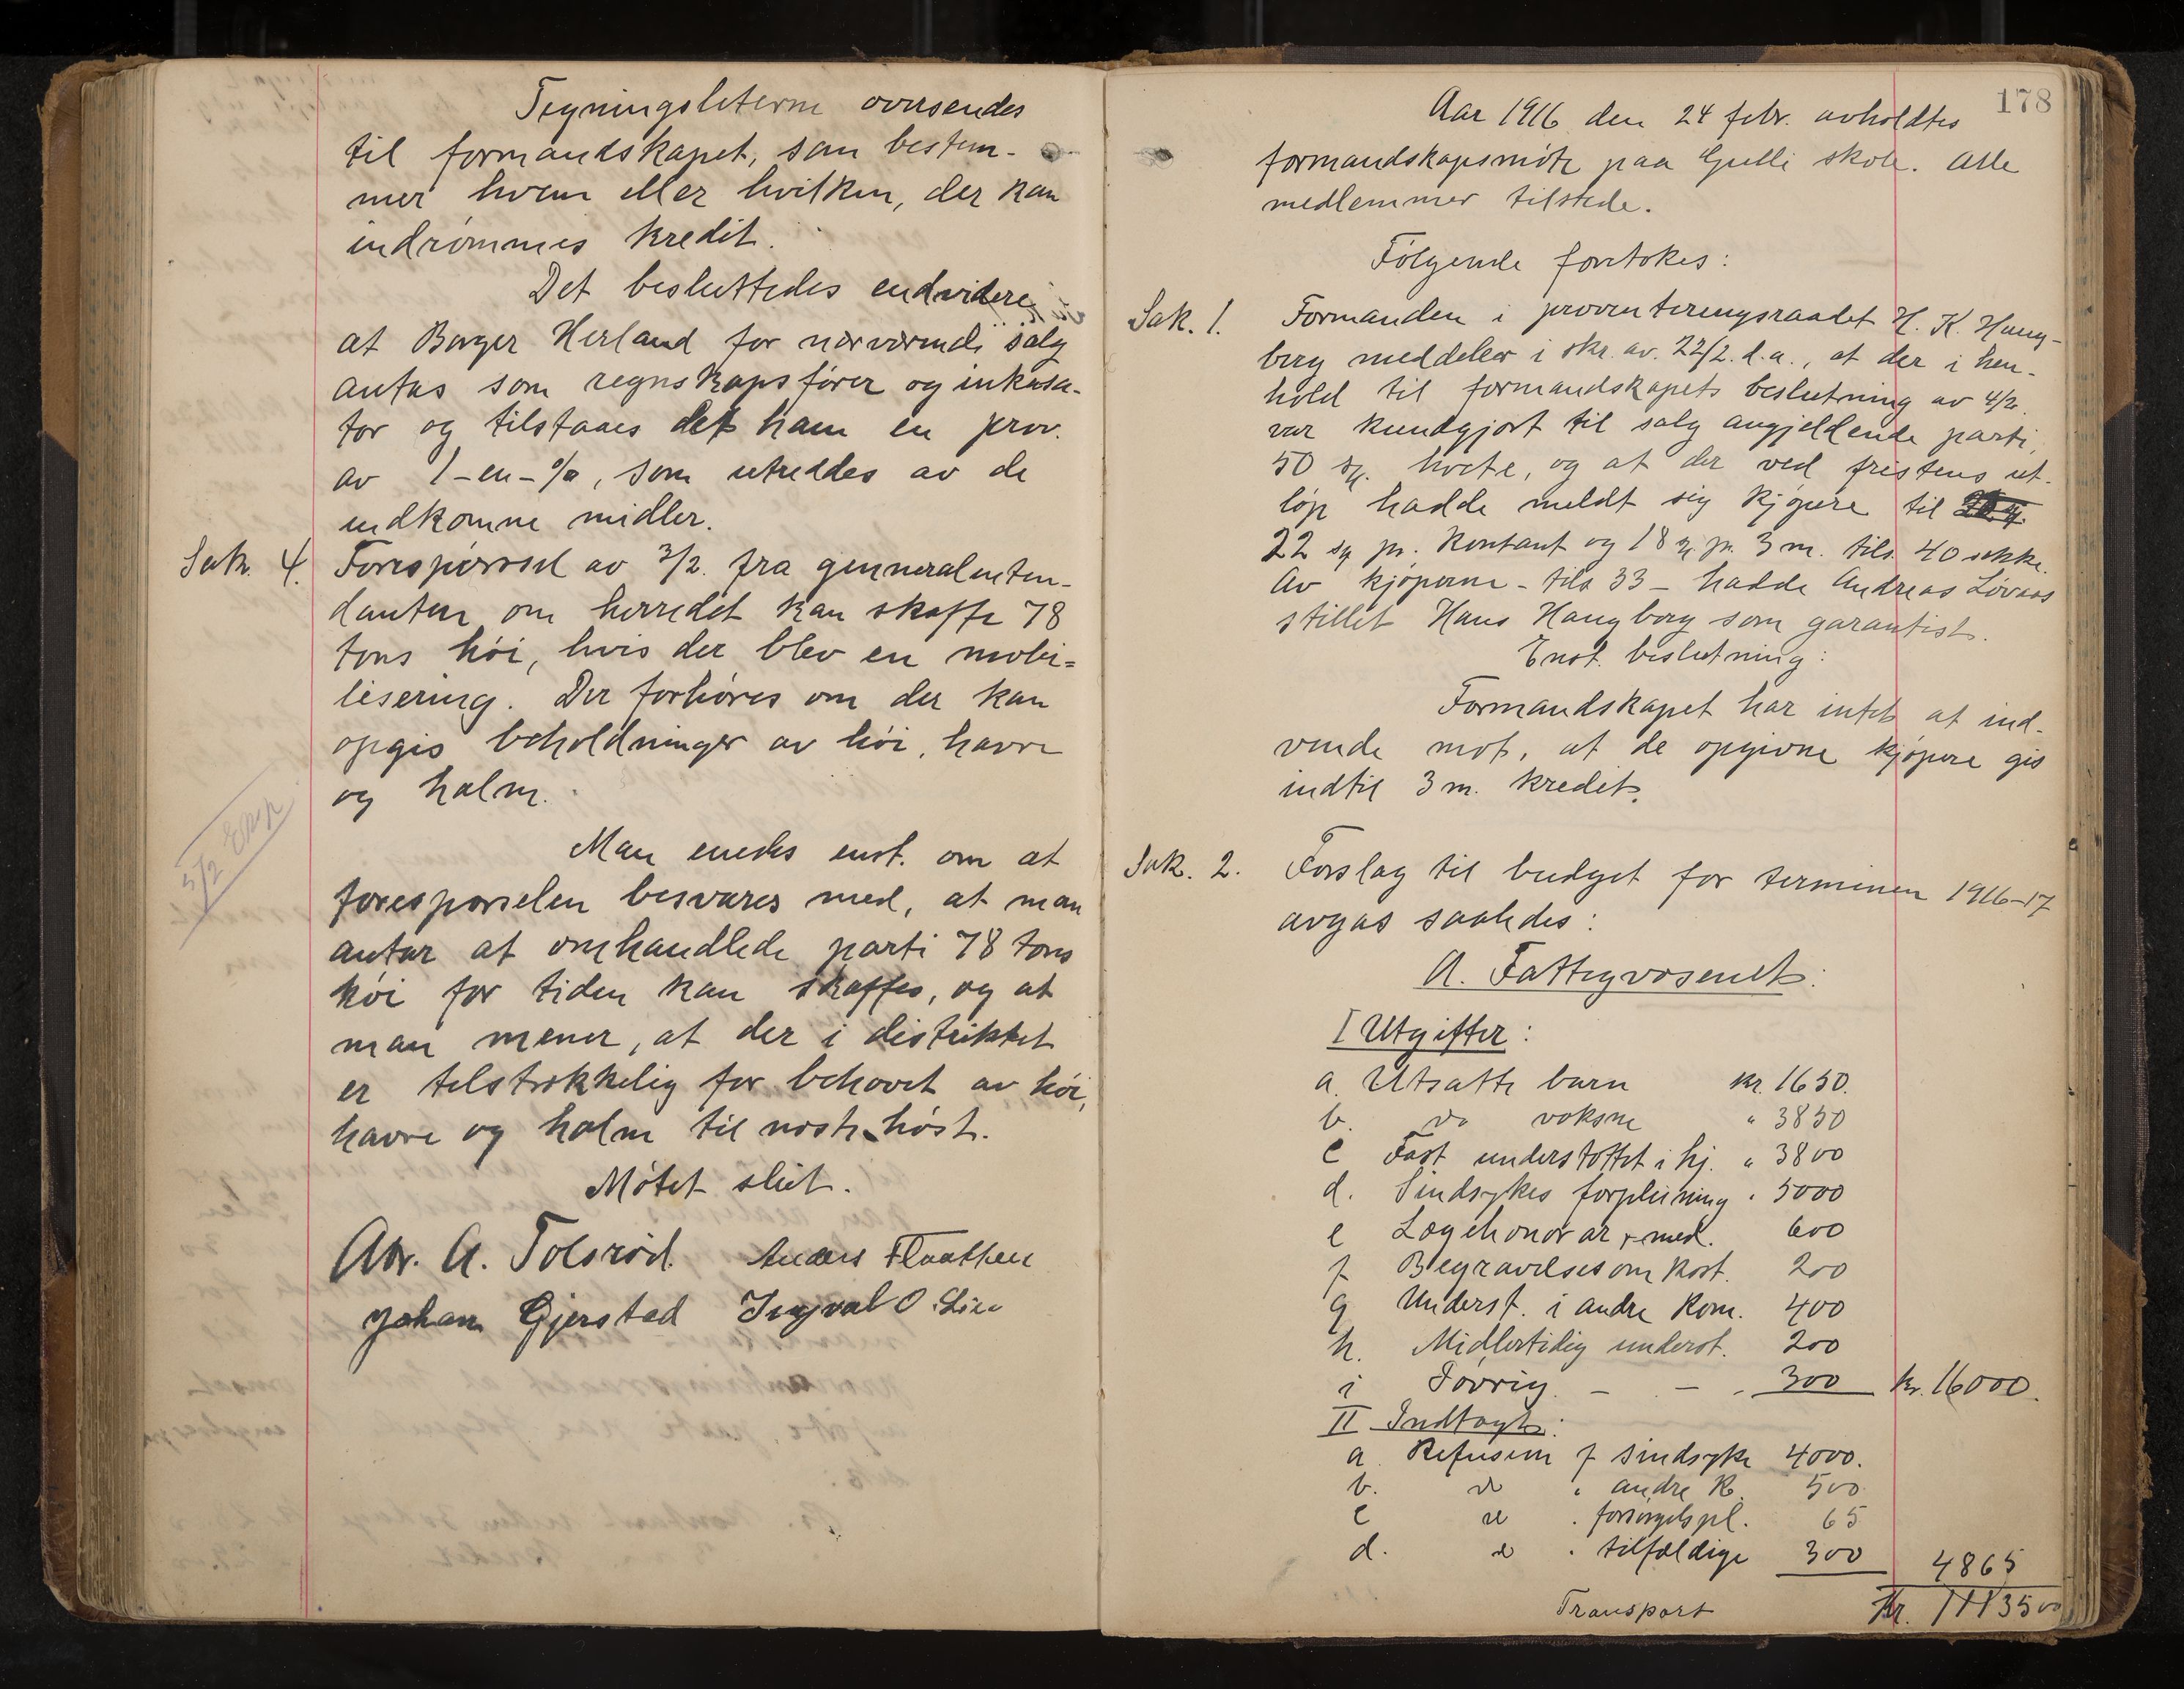 Tegningsleterne oversendes
til formandskapet, som bestem-
mer hvem eller hvilken, der kan
indrømmes kredit.
Det besluttedes endvidere
at Borger Herland for nærværende salg
antas som regnskapsfører og inkasa-
tor og tilstaaes det ham en prov.
av 1-en-%, som utreddes av de
indkomne midler.
Sak. 4. Forespørsel av 3/2. fra genneralinten-
danten om herredet kan skaffe 78
tons høi, hvis der blev en mobi=
lisering. Der forhøres om der kan
opgis beholdninger av høi, havre
og halm.
5/2 Exp
Man enedes enst. om at
forespørselen besvares med, at man
antar at omhandlede parti 78 tons
høi for tiden kan skaffes, og at
man mener, at der i distriktet
er tilstrækkelig for behovet av høi,
havre og halm til næste høst.
Møtet slut.
Abr. A. Tolsrød. Anders Flaatten
Johan Gjerstad Ingval O. Lie
178
Aar 1916 den 24 febr. avholdtes
formandskapsmøte paa Gulli skole. Alle
medlemmer tilstede.
Følgende foretokes:
Sak. 1. Formanden i provianteringsraadet H. K. Haug-
berg meddeler i skr. av. 22/2. d.a., at der i hen-
hold til formandskapets beslutning av 4/2.
var kundgjort til salg angjeldende parti,
50 sk. hvete, og at der ved fristens ut-
løp hadde meldt sig kjøpere til
22 sk pr. kontant og 18 sk pr. 3 m. tils. 40 sekke.
Av kjøperne - tils 33 - hadde Andreas Løvaas
stillet Hans Haugberg som garantist.
Enst. beslutning:
Formandskapet har intet at ind-
vende mot, at de opgivne kjøpere gis
indtil 3 m. kredit.
Sak. 2. Forslag til budget for terminen 1916-17
avgas saaledes:
A. Fattigvæsenet:
I Utgifter:
a. Utsatte barn kr. 1650.
b. do voksne " 3850
c Fast understøttet i hj. " 3800
d. Sindsykes forpleining " 5000
e Lægehonorar + med. 600
f Begravelsesomkost. 200
g Underst. i andre kom. 400
h. Midlertidig underst. 200
i Iøvrig. - - - 300 kr. 16000.
II Indtægt:
a. Refusion f sindsyke 4000.
b. do " andre k. 500
c do " forsørgelspl. 65
d. do " tilfældige 300 4865
Transport Kr. 11135 00